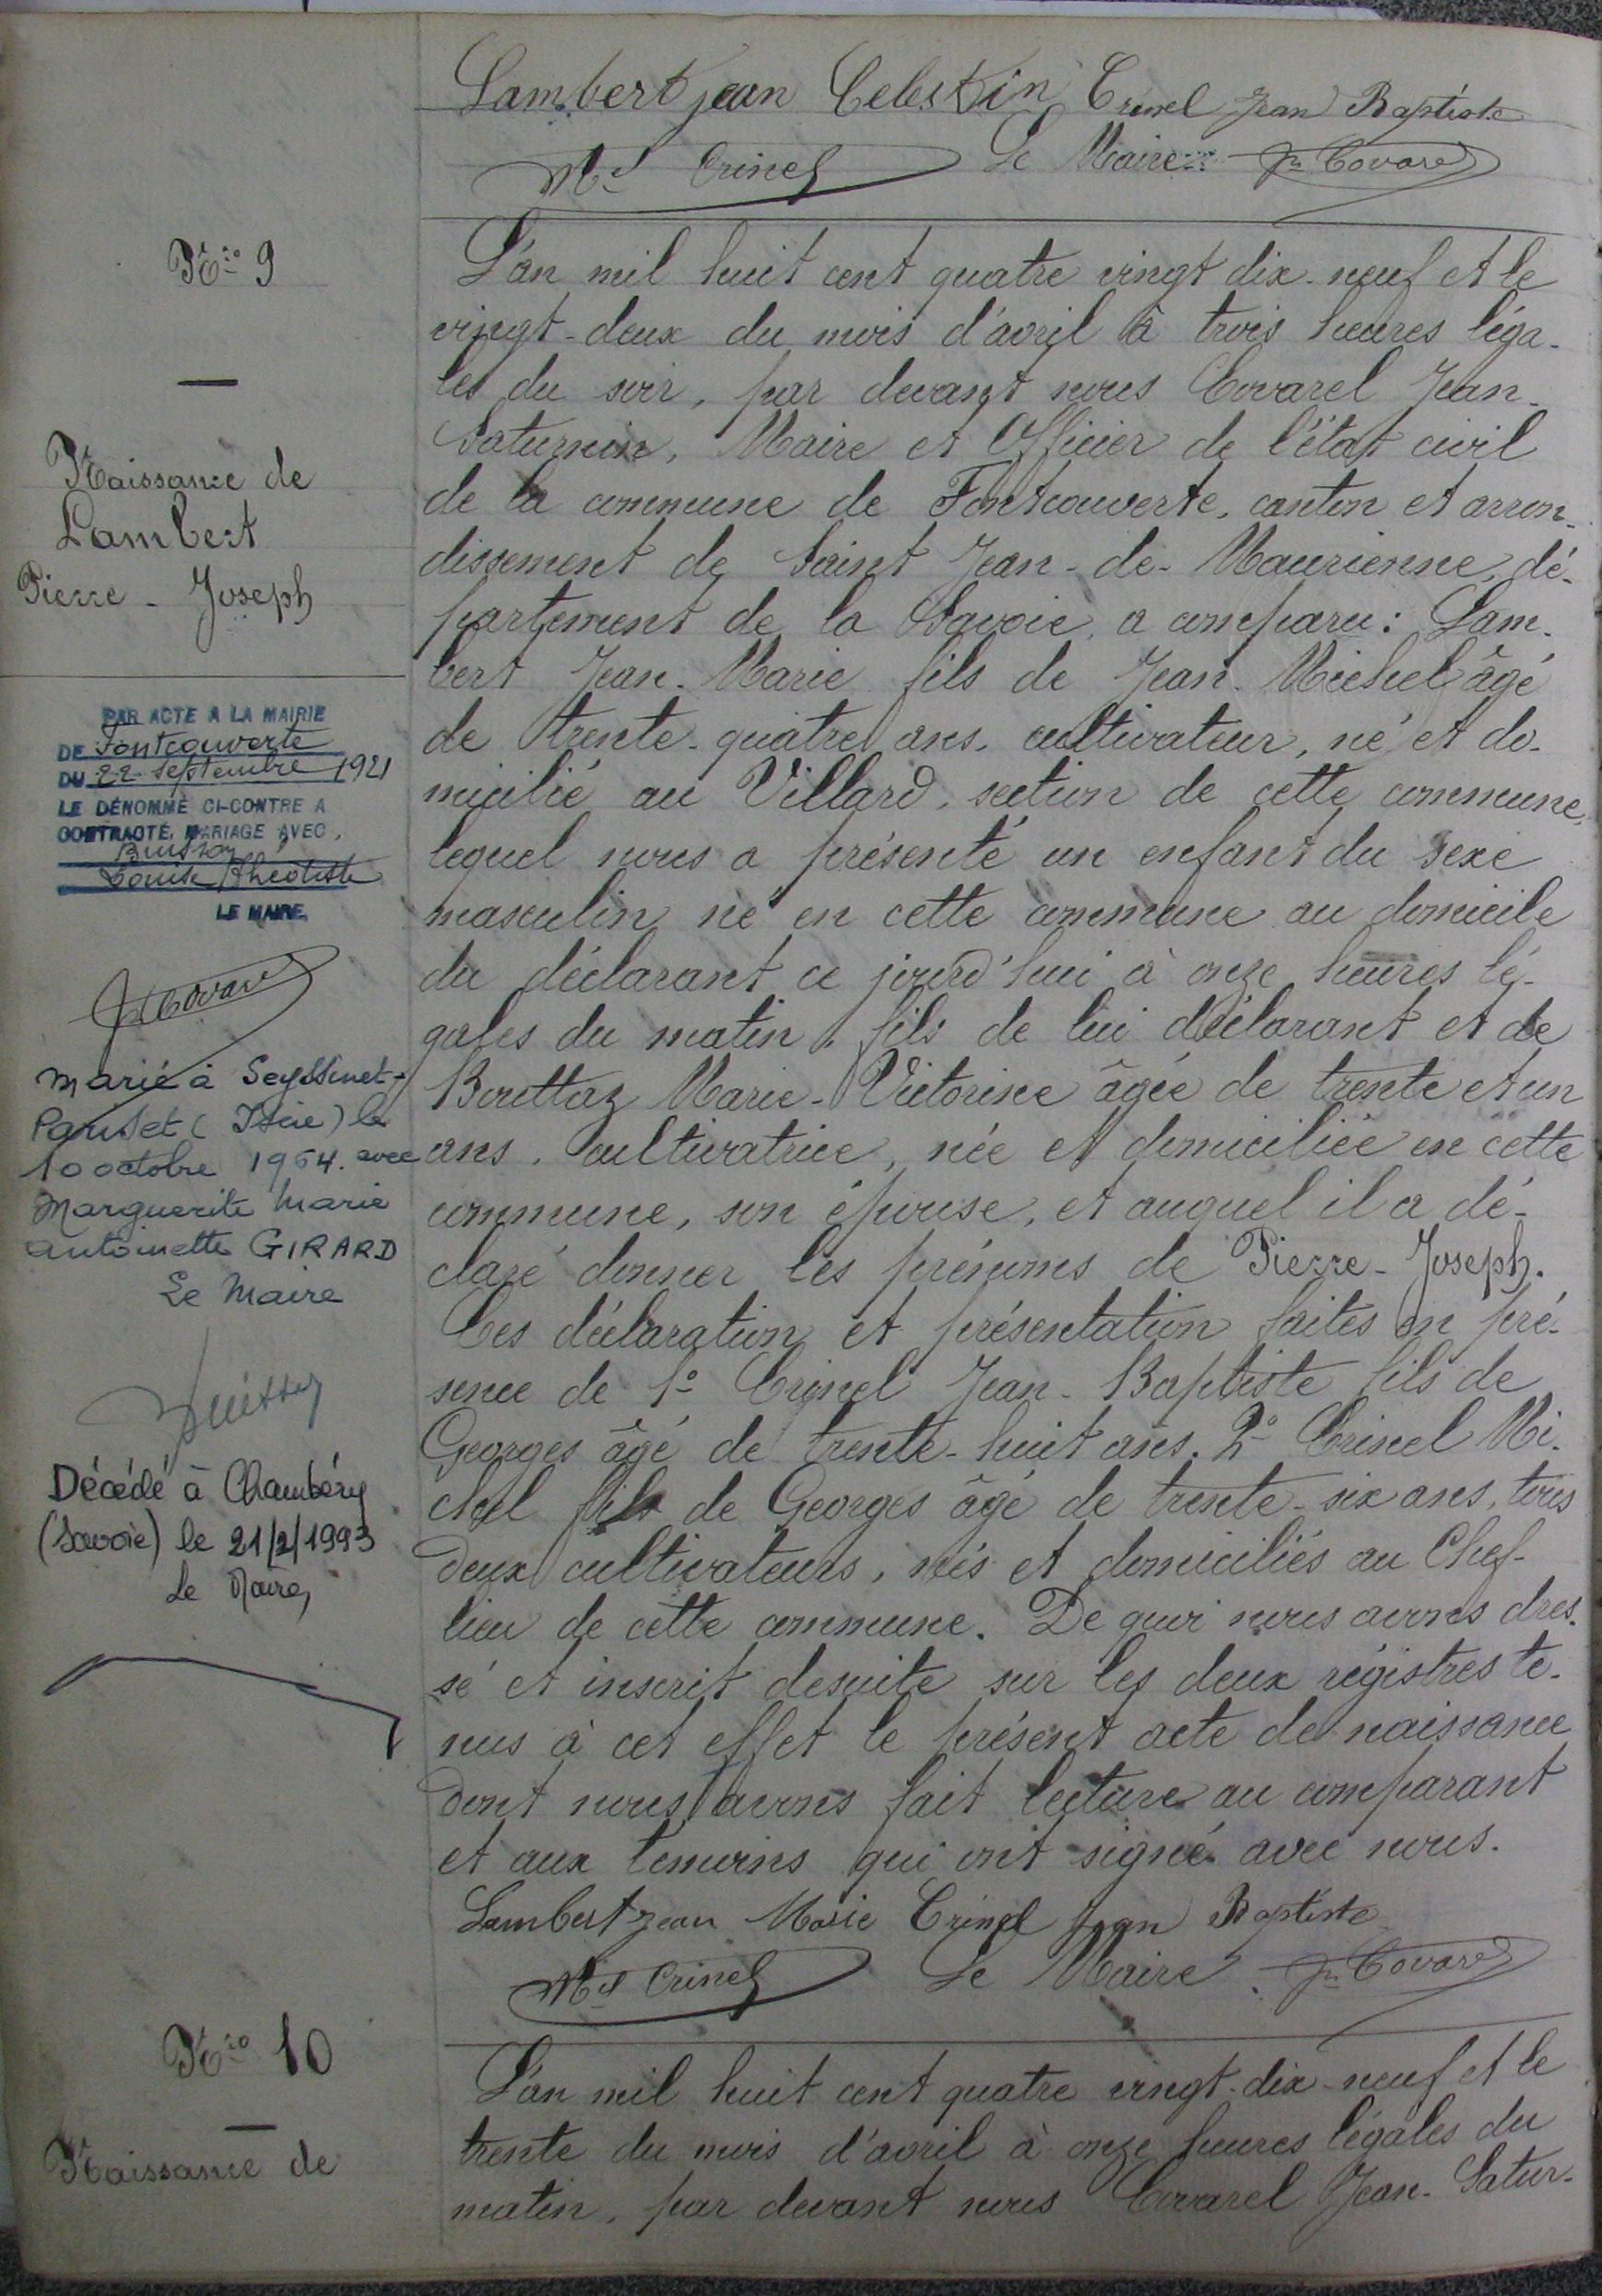 Lambert jean Celestin Crinel Jean Baptiste
Mel Crinel Le Maire Jn Covarel
Nro 9
Naissance de
Lambert
Pierre - Joseph
PAR ACTE A LA MAIRIE
DE Fontcouverte
DU 22 Septembre 1921
LE DÉNOMMÉ CI-CONTRE A
CONTRACTÉ MARIAGE AVEC
Buisson
Louise Théotiste
LE MAIRE,
Jn Covarel
Marié à Seyssinet-
Pariset (Isère) le
10 octobre 1964. avec
Marguerite Marie
Antoinette GIRARD
Le Maire
Décédé à Chambéry
(Savoie) le 21/2/1993
Le Maire,
L'an mil huit cent quatre vingt dix-neuf et le
vingt-deux du mois d'avril à trois heures léga-
les du soir, par devant nous Covarel Jean-
Saturnin, Maire et Officier de l'état civil
de la commune de Fontcouverte, canton et arron-
dissement de Saint Jean-de-Maurienne, dé-
partement de la Savoie, a comparu : Lam-
bert Jean-Marie fils de Jean-Michel âgé
de trente-quatre ans, cultivateur, né et do-
micilié au Villard, section de cette commune,
lequel nous a présenté un enfant du sexe
masculin né en cette commune au domicile
du déclarant ce jourd'hui à onze heures lé-
gales du matin, fils de lui déclarant et de
Bouttaz Marie-Victorine âgée de trente et un
ans, cultivatrice, née et domiciliée en cette
commune, son épouse, et auquel il a dé-
claré donner les prénoms de Pierre-Joseph.
Ces déclaration et présentation faites en pré-
sence de 1° Crinel Jean-Baptiste fils de
Georges âgé de trente-huit ans. 2° Crinel Mi-
chel fils de Georges âgé de trente-six ans, tous
deux cultivateurs, nés et domiciliés au Chef-
lieu de cette commune. De quoi nous avons dres-
sé et inscrit desuite sur les deux régistres te-
nus à cet effet le présent acte de naissance
dont nous avons fait lecture au comparant
et aux témoins qui ont signé avec nous.
Lambert jean Marie Crinel Jean Baptiste
Mel Crinel Le Maire Jn Covarel
Nro 10
Naissance de
L'an mil huit cent quatre vingt-dix-neuf et le
trente du mois d'avril à onze heures légales du
matin, par devant nous Covarel Jean-Satur-